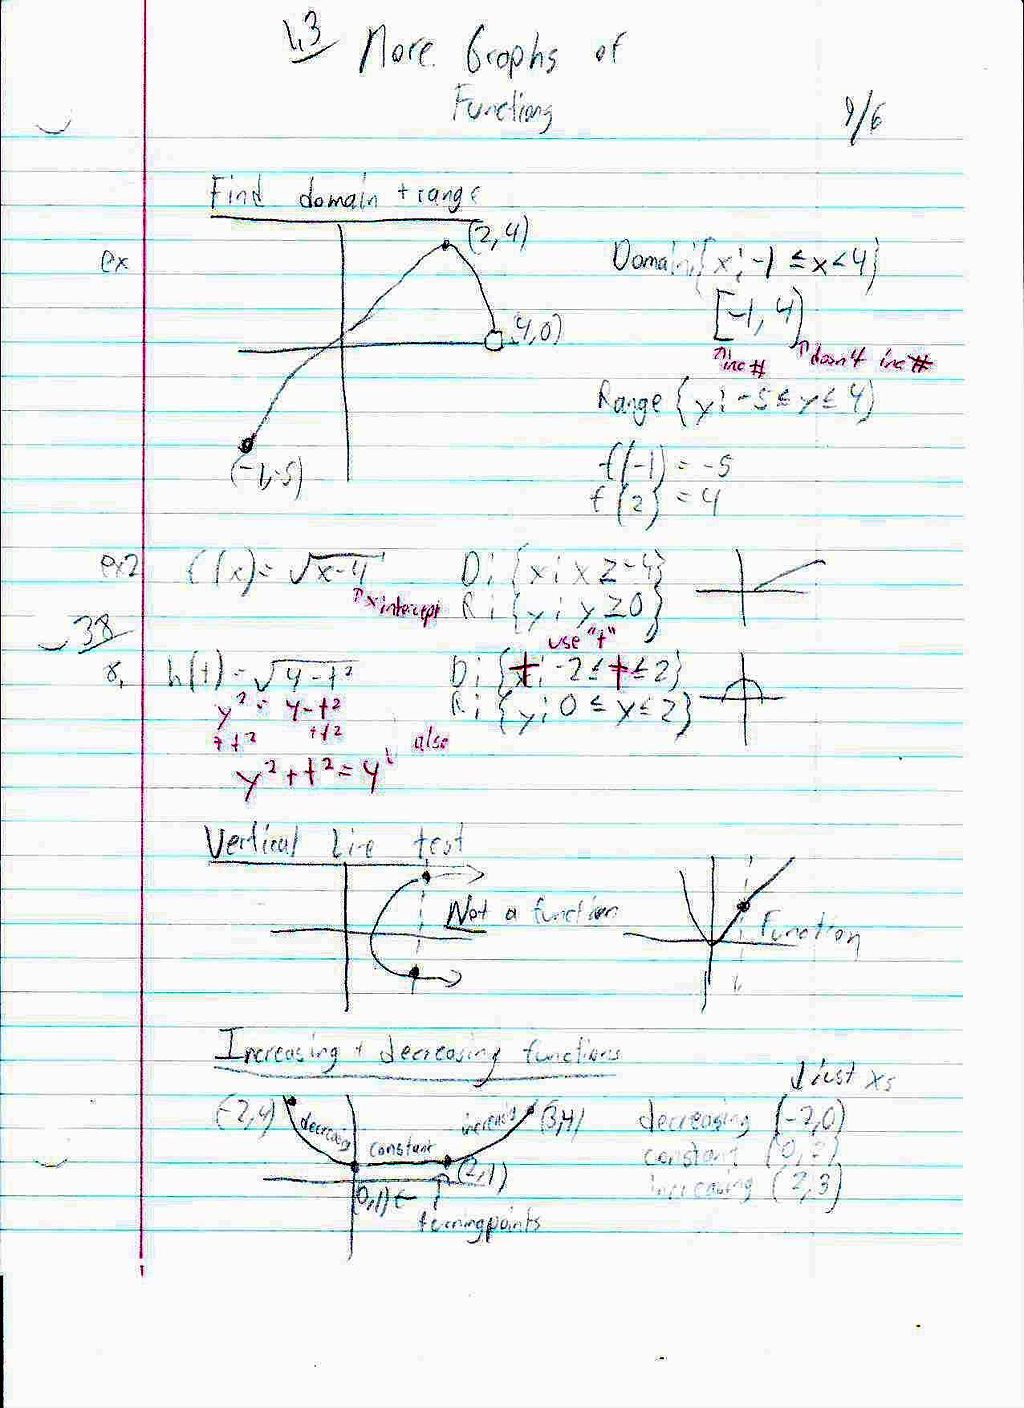 1.3 More Graphs of
Functions
9/6
Find domain + range
ex
(2,4)
(4,0)
(-1,-5)
Domain; {x; -1 ≤ x < 4}
[-1, 4)
↑inc # ↑doesn't inc #
Range {y; -5 ≤ y ≤ 4}
f(-1) = -5
f(2) = 4
ex2 f(x) = √x-4 D; {x; x ≥ -4}
↑x intercept R; {y; y ≥ 0}
38
8. h(t) = √4-t² D; {t; -2 ≤ t ≤ 2}
use "t"
y² = 4-t² R; {y; 0 ≤ y ≤ 2}
+t² +t²
y² + t² = 4
also
Vertical line test
Not a function
Function
Increasing + decreasing functions
↓just xs
(-2,4) decreasing constant increasing (3,4)
(0,1) ← (2,1)
turning points
decreasing (-2,0)
constant (0,2)
increasing (2,3)